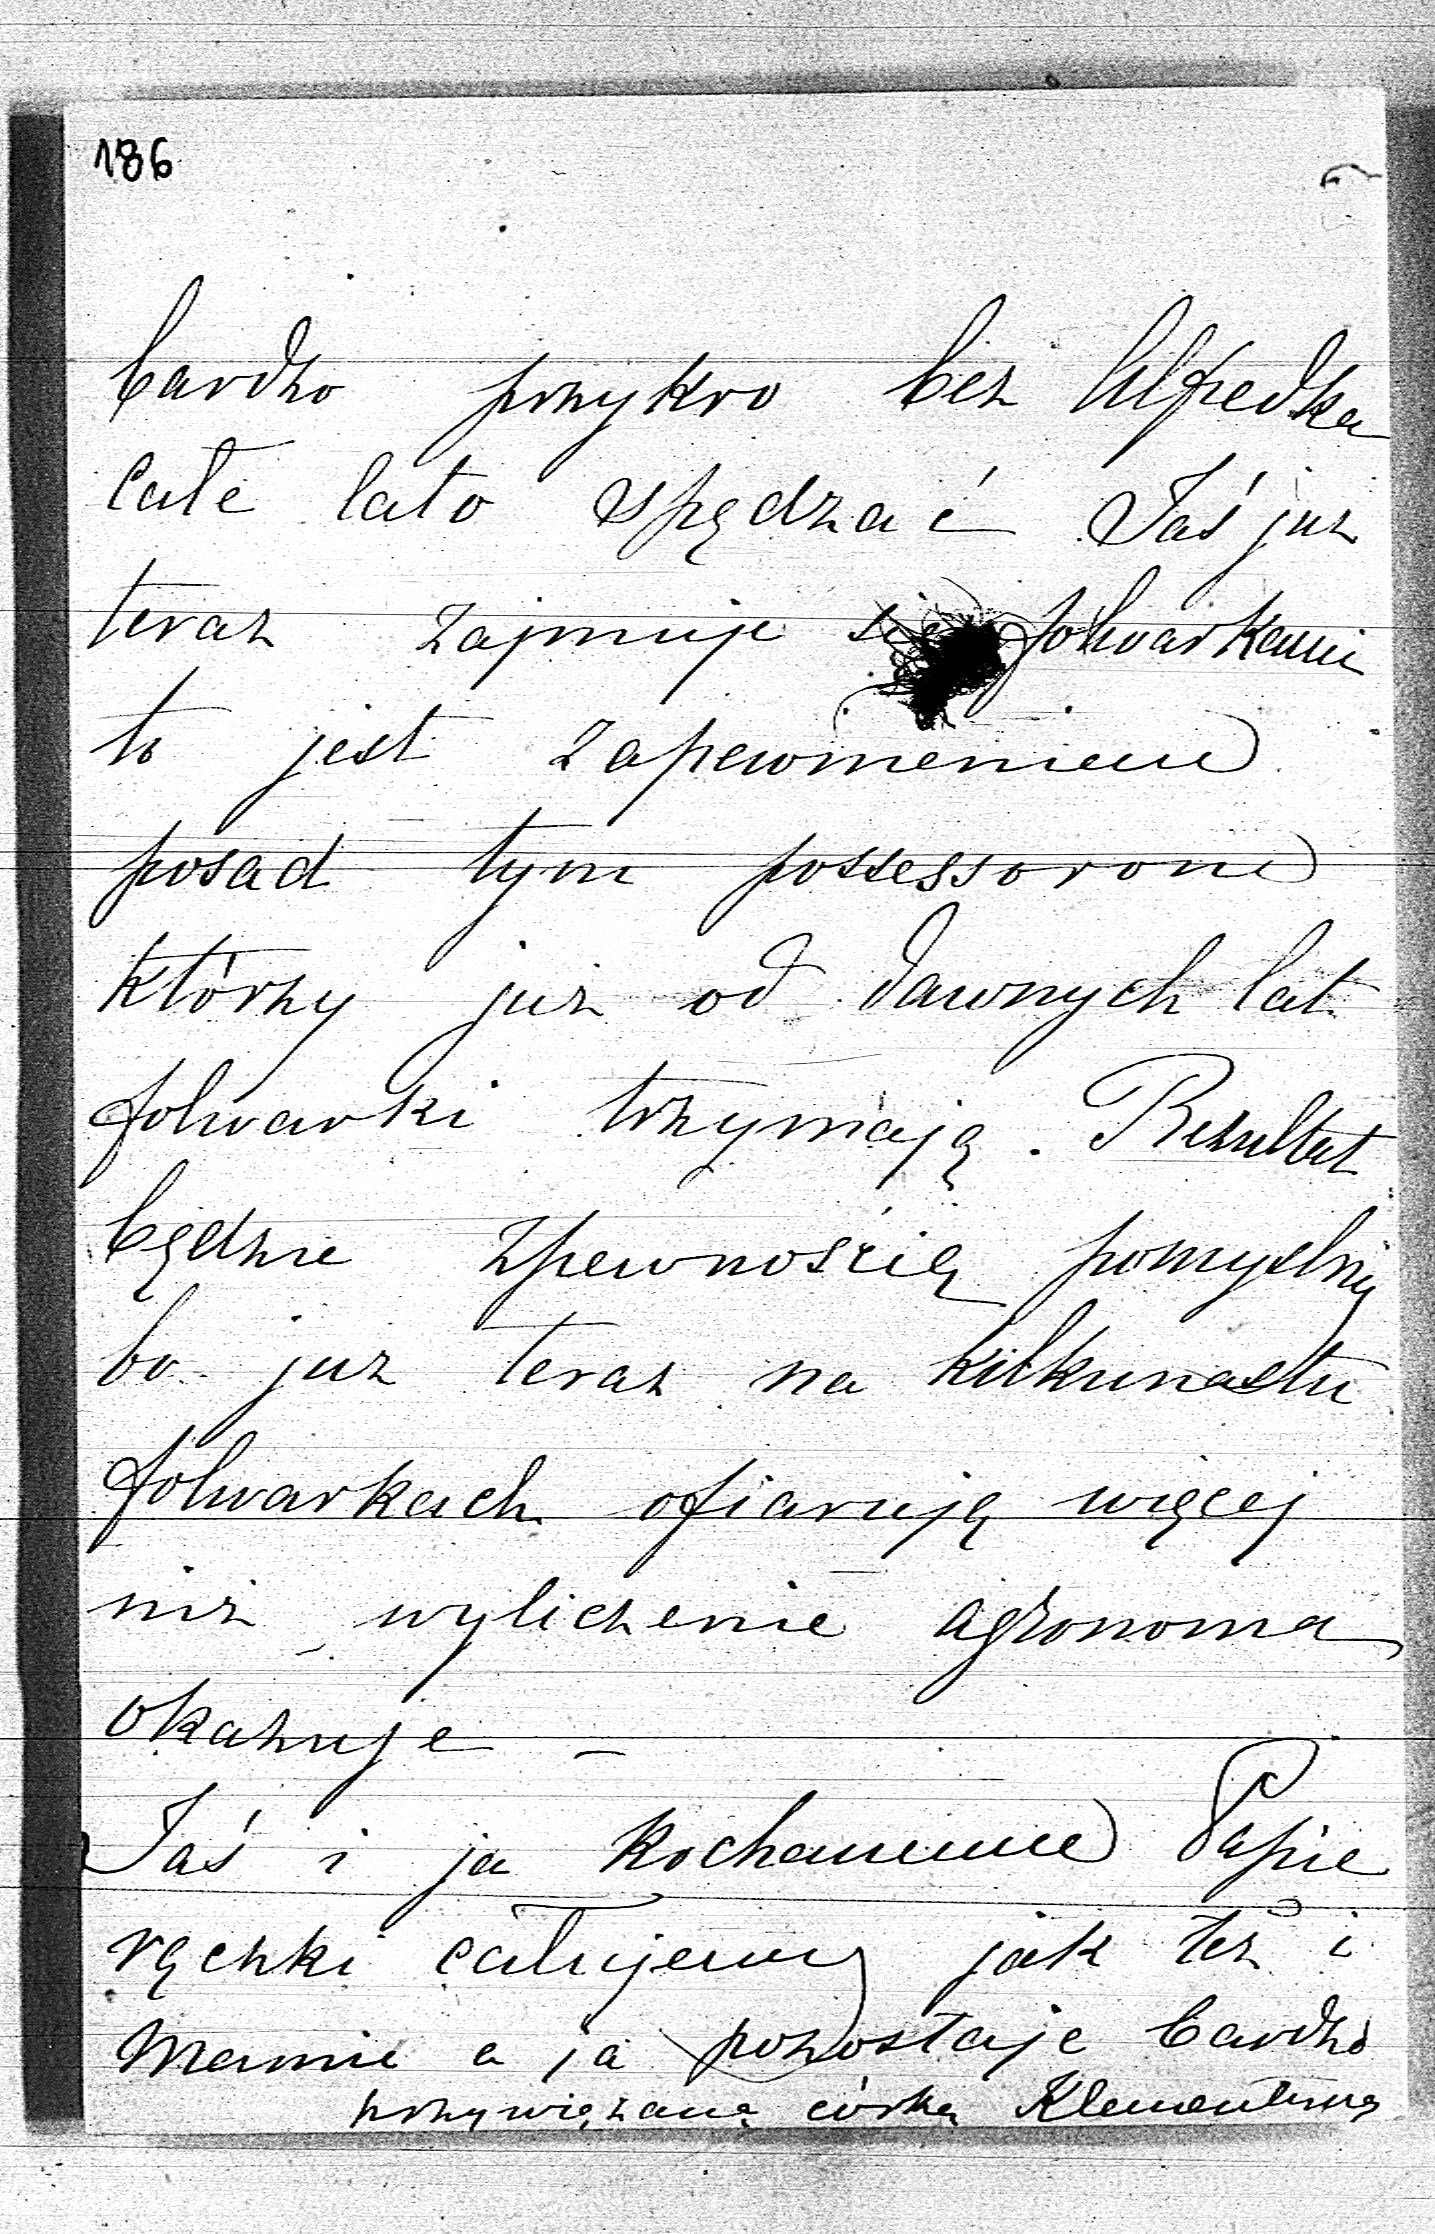 186
bardzo przykro bez Alfredka
całe lato spędzać Jaś juz
teraz zajmuje się folwarkami
to jest zapewnieniem
posad tym possessorom
którzy juz od dawnych lat
folwarki trzymają. Rezultat
będzie zpewnością pomyslny
bo juz teraz na kilkunastu
folwarkach ofiarują więcej
niz wyliczenie agronoma
okazuje –
Jaś i ja kochanemu Papie
rączki całujemy jak też i
Mamie a ja pozostaje bardzo
przywiązaną córką Klementyną